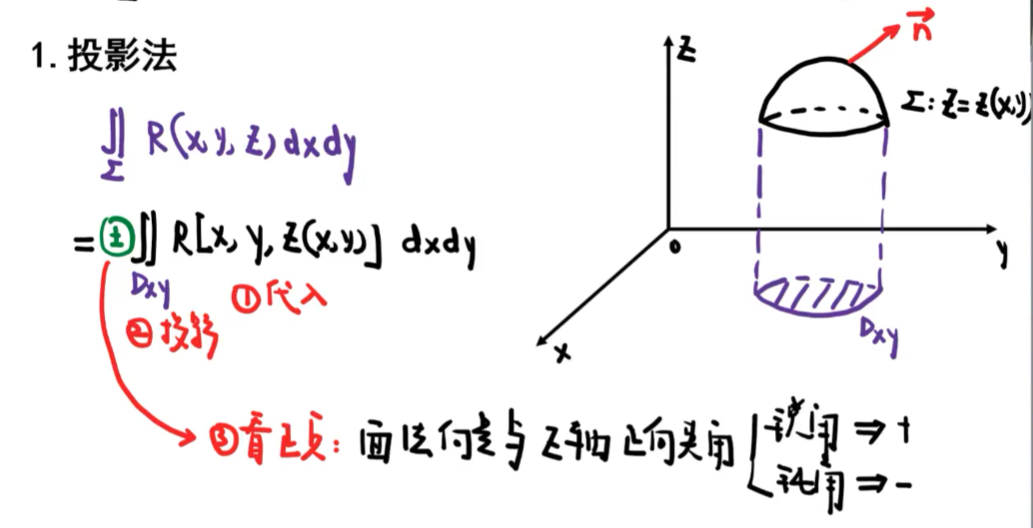 1. 投影法
∬ R(x,y,z)dxdy
Σ
= ± ∬ R[x, y, z(x,y)] dxdy
Dxy
①代入
②投影
③看正负: 面法向量与z轴正向夹角
锐角 ⇒ +
钝角 ⇒ -
z
n
Σ: z=z(x,y)
o
y
x
Dxy